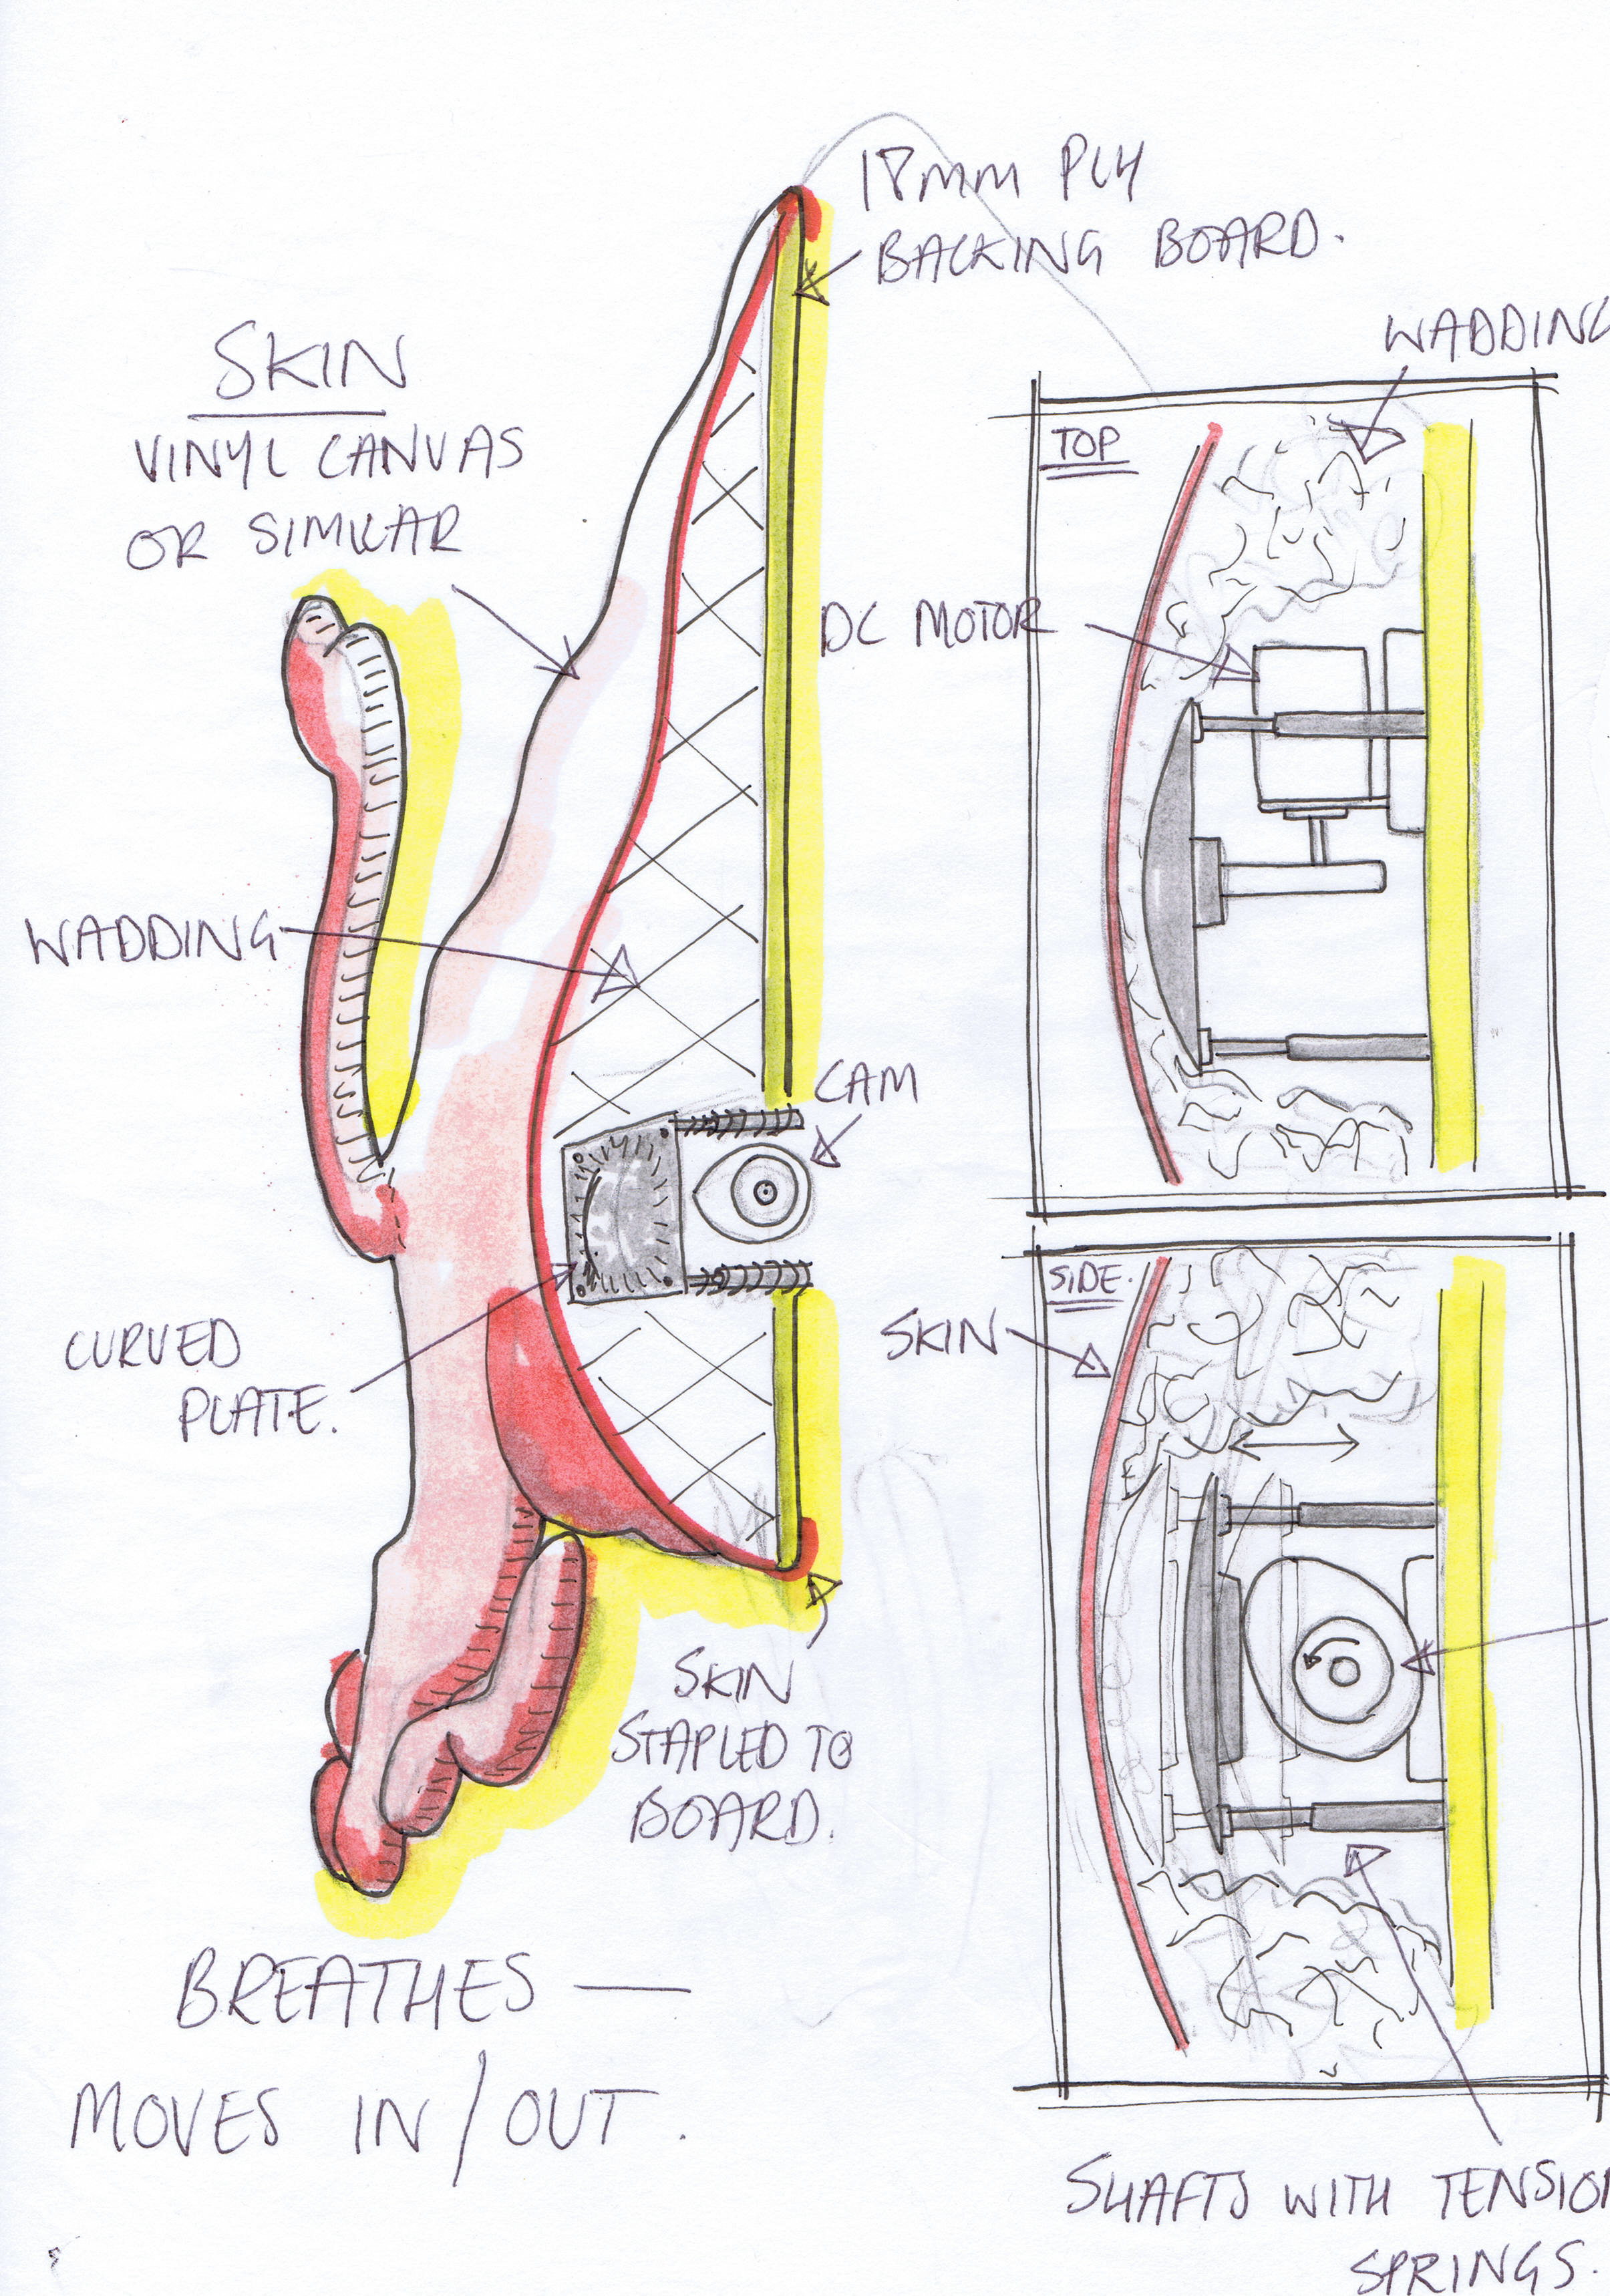 18MM PLY
BACKING BOARD.
WADDING
SKIN
VINYL CANVAS
OR SIMILAR
TOP
DC MOTOR
WADDING
CAM
CURVED
PLATE.
SIDE.
SKIN
SKIN
STAPLED TO
BOARD.
BREATHES —
MOVES IN / OUT.
SHAFTS WITH TENSION
SPRINGS.